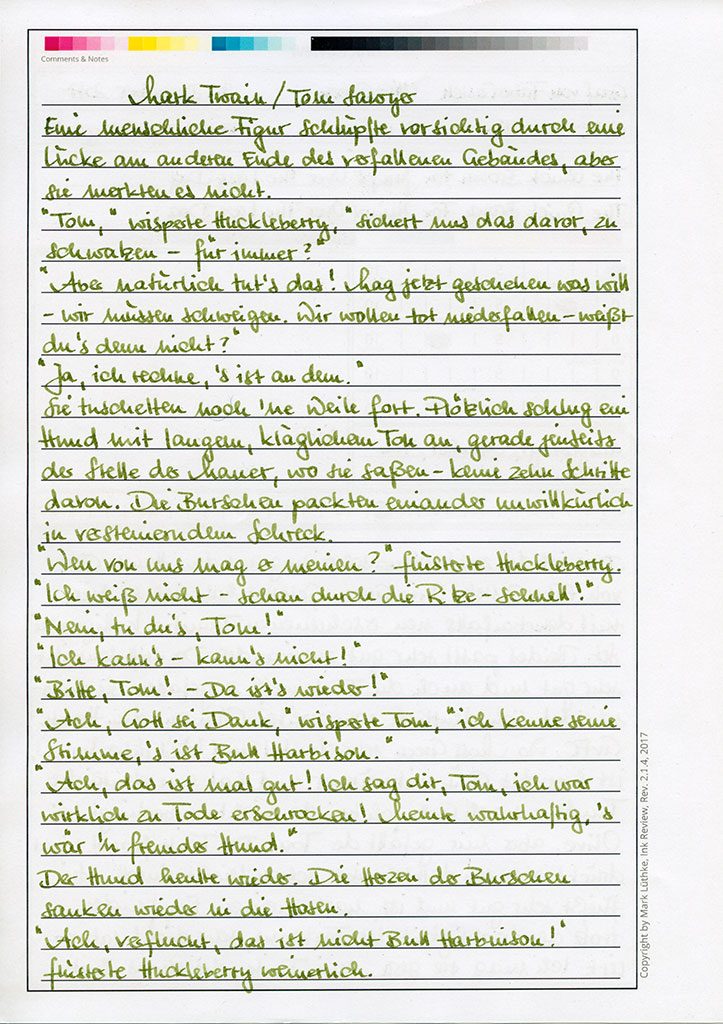 Comments & Notes
Mark Twain / Tom Sawyer
Eine menschliche Figur schlüpfte vorsichtig durch eine
Lücke am anderen Ende des verfallenen Gebäudes, aber
sie merkten es nicht.
"Tom," wisperte Huckleberry, "sichert uns das davor, zu
schwatzen – für immer?"
"Aber natürlich tut's das! Mag jetzt geschehen was will
– wir müssen schweigen. Wir wollen tot niederfallen – weißt
du's denn nicht?"
"Ja, ich rechne, 's ist an dem."
Sie tuschelten noch 'ne Weile fort. Plötzlich schlug ein
Hund mit langem, kläglichem Ton an, gerade jenseits
der Stelle der Mauer, wo sie saßen – keine zehn Schritte
davon. Die Burschen packten einander unwillkürlich
in versteinerndem Schreck.
"Wen von uns mag er meinen?" flüsterte Huckleberry.
"Ich weiß nicht – schau durch die Ritze – schnell!"
"Nein, tu du's, Tom!"
"Ich kann's – kann's nicht!"
"Bitte, Tom! – Da ist's wieder!"
"Ach, Gott sei Dank," wisperte Tom, "ich kenne seine
Stimme, 's ist Bull Harbison."
"Ach, das ist mal gut! Ich sag dir, Tom, ich war
wirklich zu Tode erschrocken! Meinte wahrhaftig, 's
wär 'n fremder Hund."
Der Hund heulte wieder. Die Herzen der Burschen
sanken wieder in die Hosen.
"Ach, verflucht, das ist nicht Bull Harbinson!"
flüsterte Huckleberry weinerlich.
Copyright by Mark Lüthke, Ink Review, Rev. 2.1.4, 2017